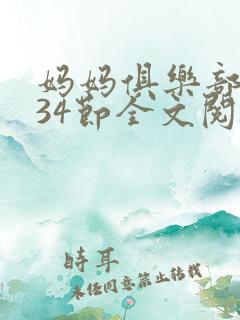 妈妈俱樂部
34節全文閱
時耳
未任同意禁止转载